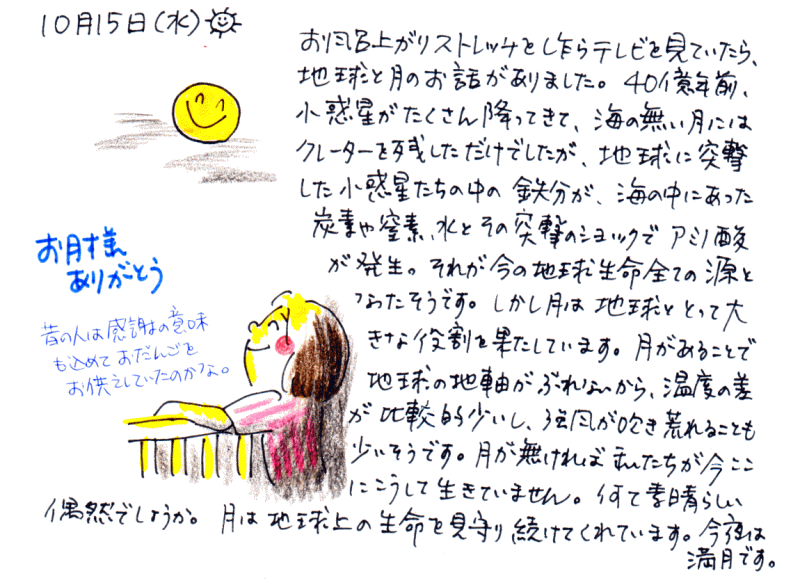 10月15日(水)
お風呂上がりストレッチをし乍らテレビを見ていたら、
地球と月のお話がありました。40億年前、
小惑星がたくさん降ってきて、海の無い月には
クレーターを残しただけでしたが、地球に突撃
した小惑星たちの中の鉄分が、海の中にあった
炭素や窒素、水とその突撃のショックでアミノ酸
が発生。それが今の地球生命全ての源と
なったそうです。しかし月は地球にとって大
きな役割を果たしています。月があることで
地球の地軸がぶれないから、温度の差
が比較的少いし、強風が吹き荒れることも
少いそうです。月が無ければ私たちが今ここ
にこうして生きていません。何て素晴らしい
偶然でしょうか。月は地球上の生命を見守り続けてくれています。今夜は
満月です。
お月様
ありがとう
昔の人は感謝の意味
も込めておだんごを
お供えしていたのかな。